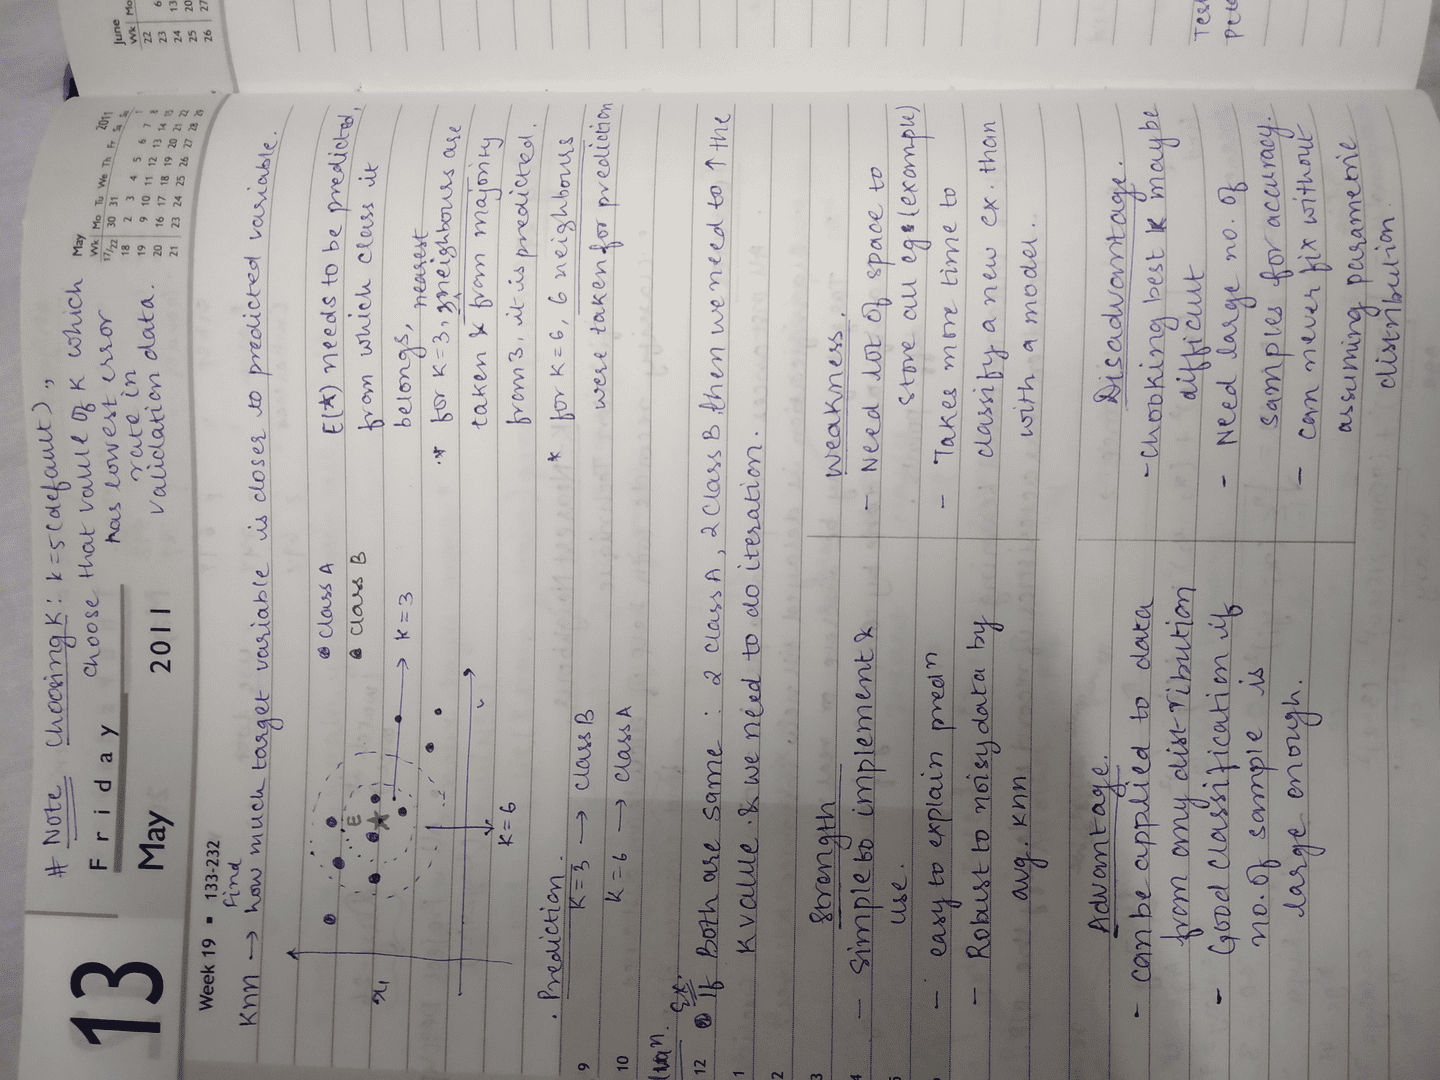 # Note Choosing K: k=5 (default),
choose that value of K which
has lowest error
rate in
validation data.
13
Friday
May 2011
May 2011
Wk Mo Tu We Th Fr Sa Su
17/22 30 31 1
18 2 3 4 5 6 7 8
19 9 10 11 12 13 14 15
20 16 17 18 19 20 21 22
21 23 24 25 26 27 28 29
June
Wk Mo
22
23 6
24 13
25 20
26 27
Week 19 ▪ 133-232
find
Knn → how much target variable is closer to predicted variable.
class A
class B
K=3
E
x₁
K=6
E(★) needs to be predicted,
from which class it
belongs,
nearest
* for K=3, 3 neighbours are
taken & from majority
from 3, it is predicted.
* for K=6, 6 neighbours
were taken for prediction
. Prediction.
K=3 → class B
K=6 → class A
9
10
Ex:
12 If Both are same : 2 class A, 2 class B then we need to ↑ the
1 K value. & we need to do iteration.
2
3
4
5
Strength
- Simple to implement &
use.
- easy to explain predⁿ
- Robust to noisy data by
avg. knn
Weakness.
- Need lot of space to
store all egs (example)
- Takes more time to
classify a new ex. than
with a model.
Advantage.
- can be applied to data
from any distribution
- Good classification if
no. of sample is
large enough.
Disadvantage.
- Chooking best K maybe
difficult
- Need large no. of
samples for accuracy.
- can never fix without
assuming parametric
distribution.